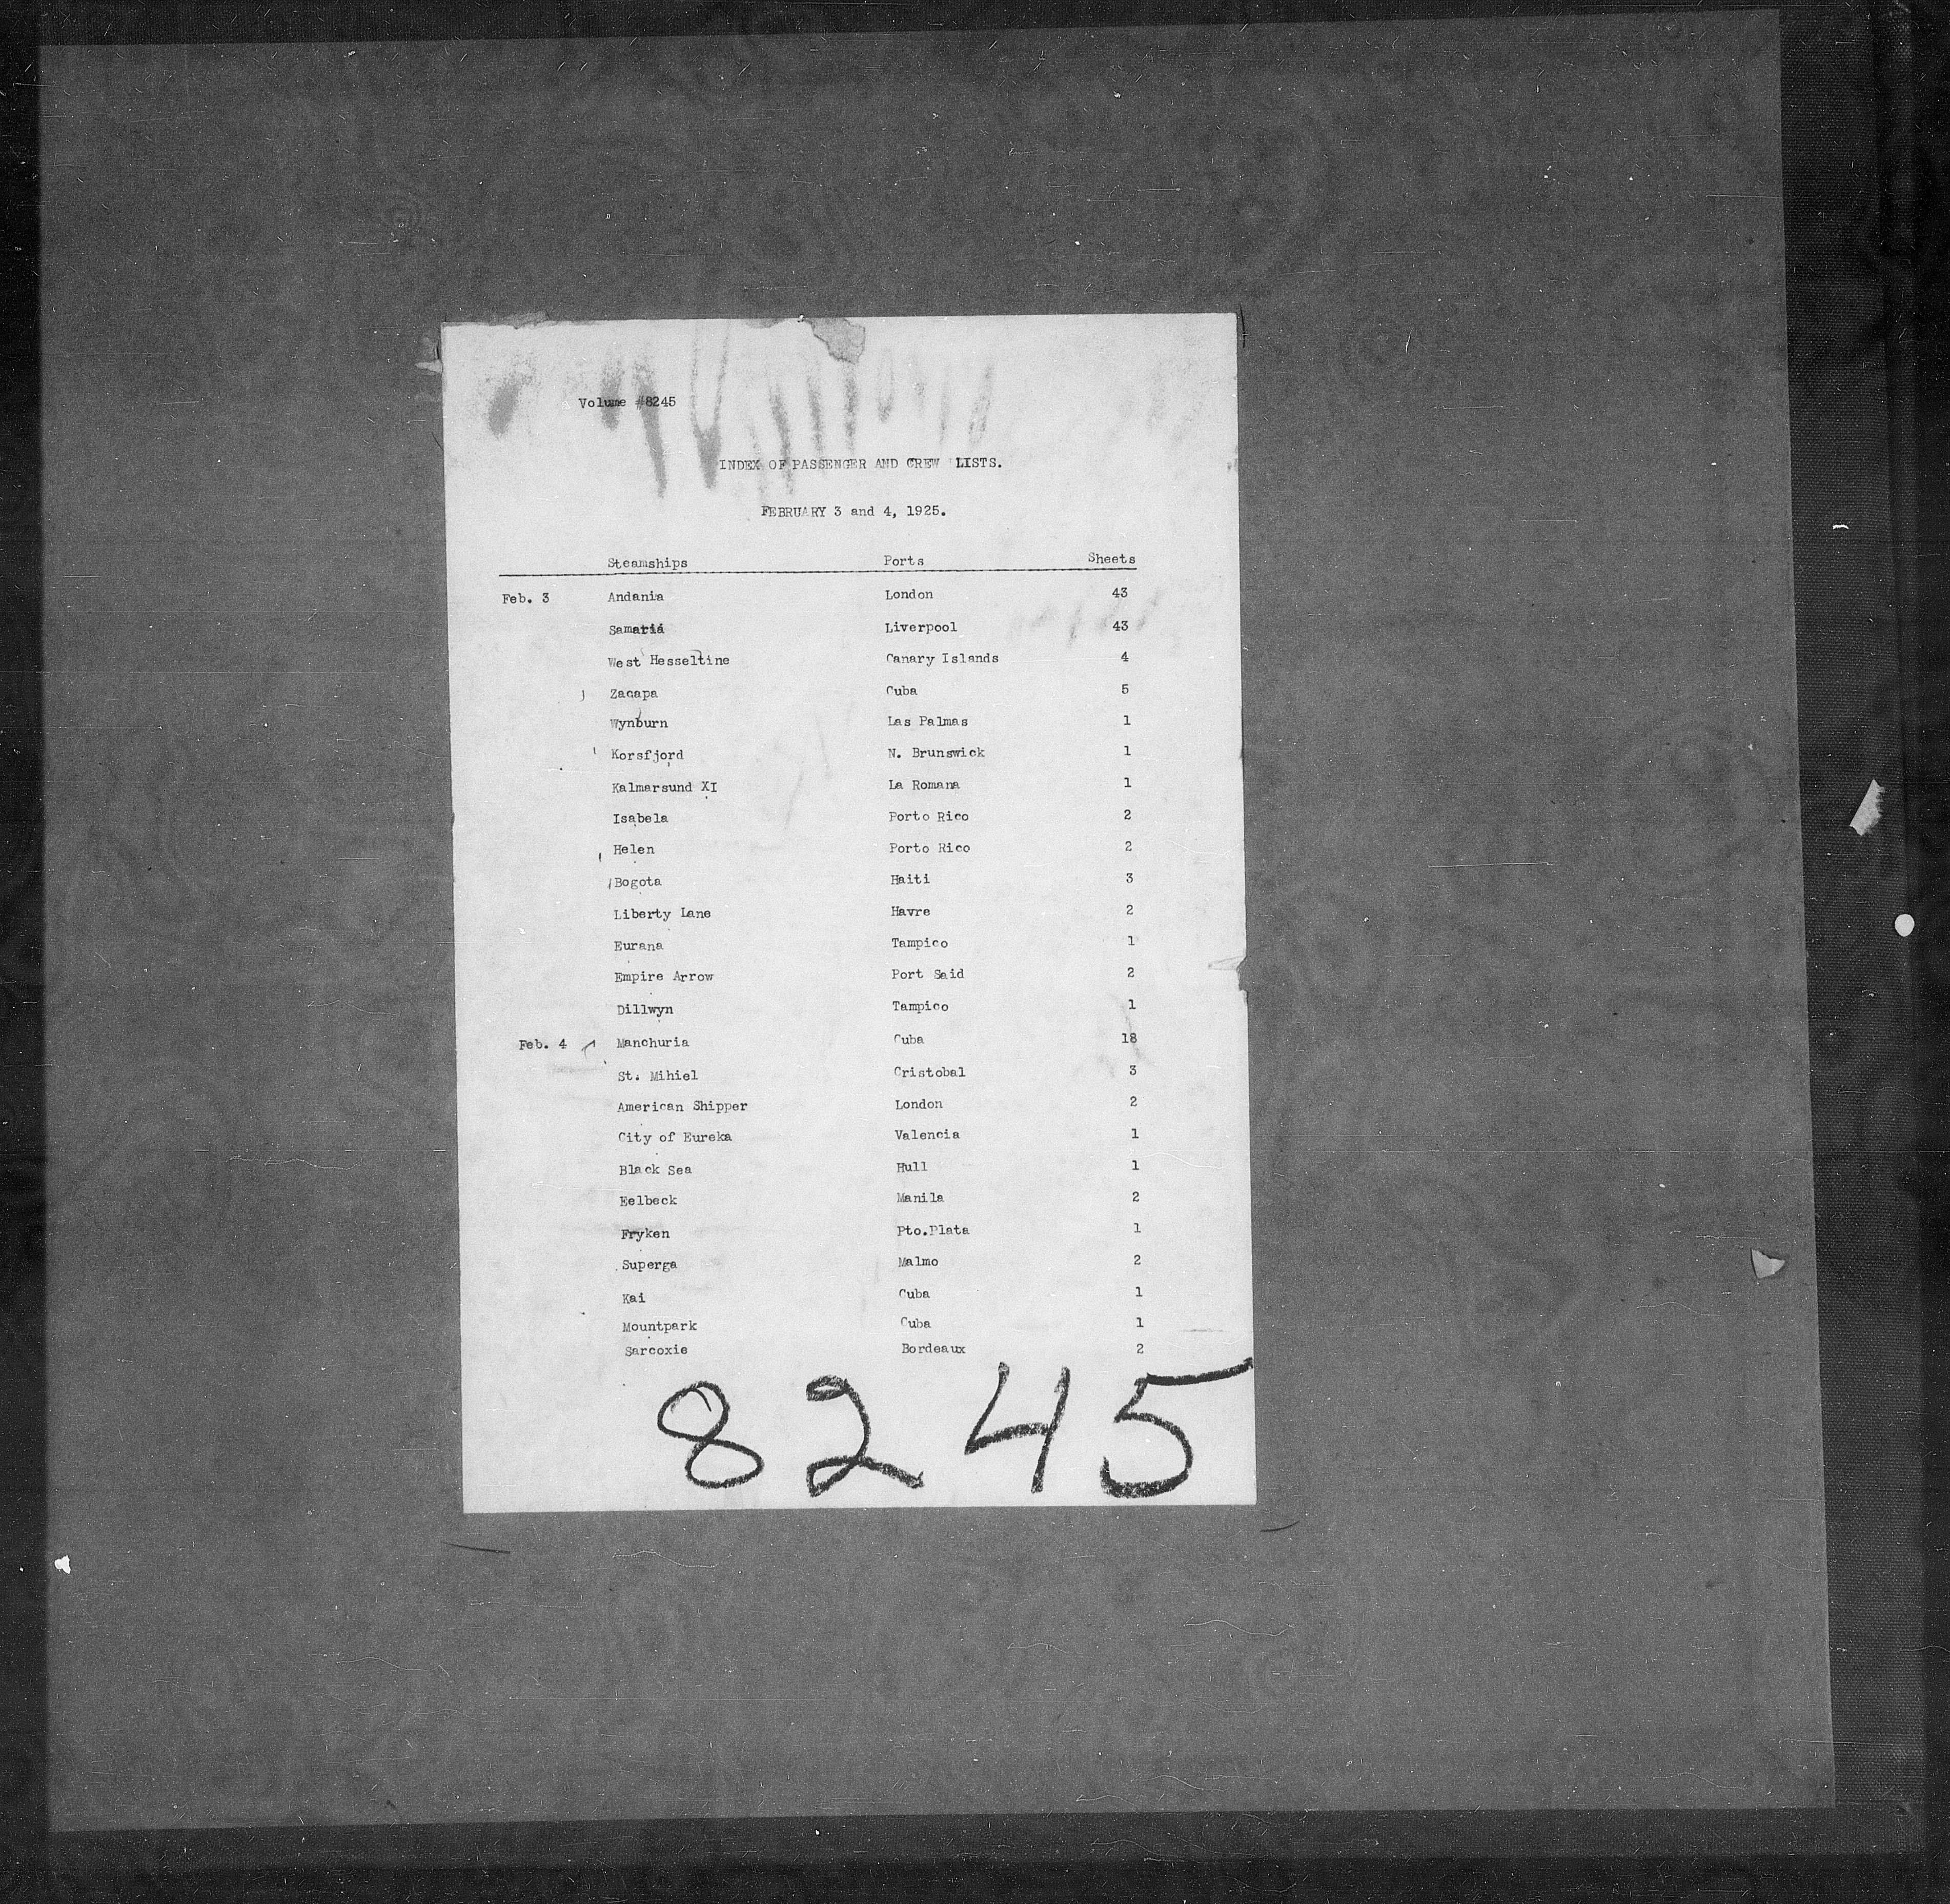 Volume #8245
INDEX OF PASSENGER AND CREW LISTS.
FEBRUARY 3 and 4, 1925.
Steamships Ports Sheets
Feb. 3 Andania London 43
Samaria Liverpool 43
West Hesseltine Canary Islands 4
Zacapa Cuba 5
Wynburn Las Palmas 1
Korsfjord N. Brunswick 1
Kalmarsund XI La Romana 1
Isabela Porto Rico 2
Helen Porto Rico 2
Bogota Haiti 3
Liberty Lane Havre 2
Eurana Tampico 1
Empire Arrow Port Said 2
Dillwyn Tampico 1
Feb. 4 Manchuria Cuba 18
St. Mihiel Cristobal 3
American Shipper London 2
City of Eureka Valencia 1
Black Sea Hull 1
Eelbeck Manila 2
Fryken Pto.Plata 1
Superga Malmo 2
Kai Cuba 1
Mountpark Cuba 1
Sarcoxie Bordeaux 2
8245